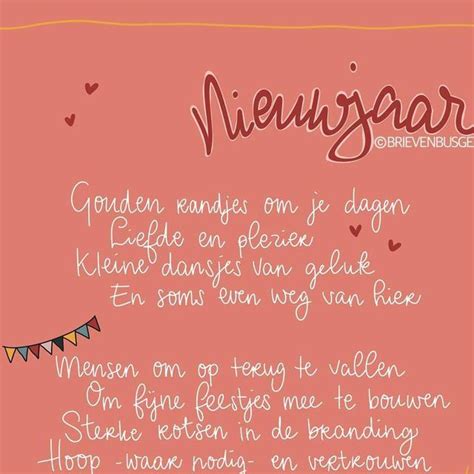 Nieuwjaar
©BRIEVENBUSGE
Gouden randjes om je dagen
Liefde en plezier
Kleine dansjes van geluk
En soms even weg van hier
Mensen om op terug te vallen
Om fijne feestjes mee te bouwen
Sterke rotsen in de branding
Hoop -waar nodig- en vertrouwen